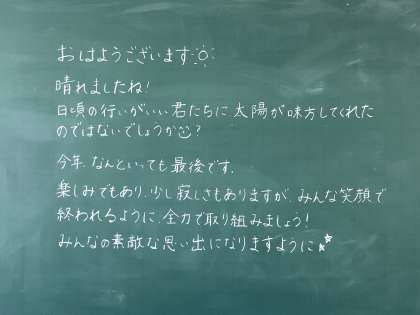 おはようございます
晴れましたね!
日頃の行いがいい君たちに太陽が味方してくれた
のではないでしょうか?
今年、なんといっても最後です。
楽しみでもあり、少し寂しさもありますが、みんな笑顔で
終われるように、全力で取り組みましょう!
みんなの素敵な思い出になりますように